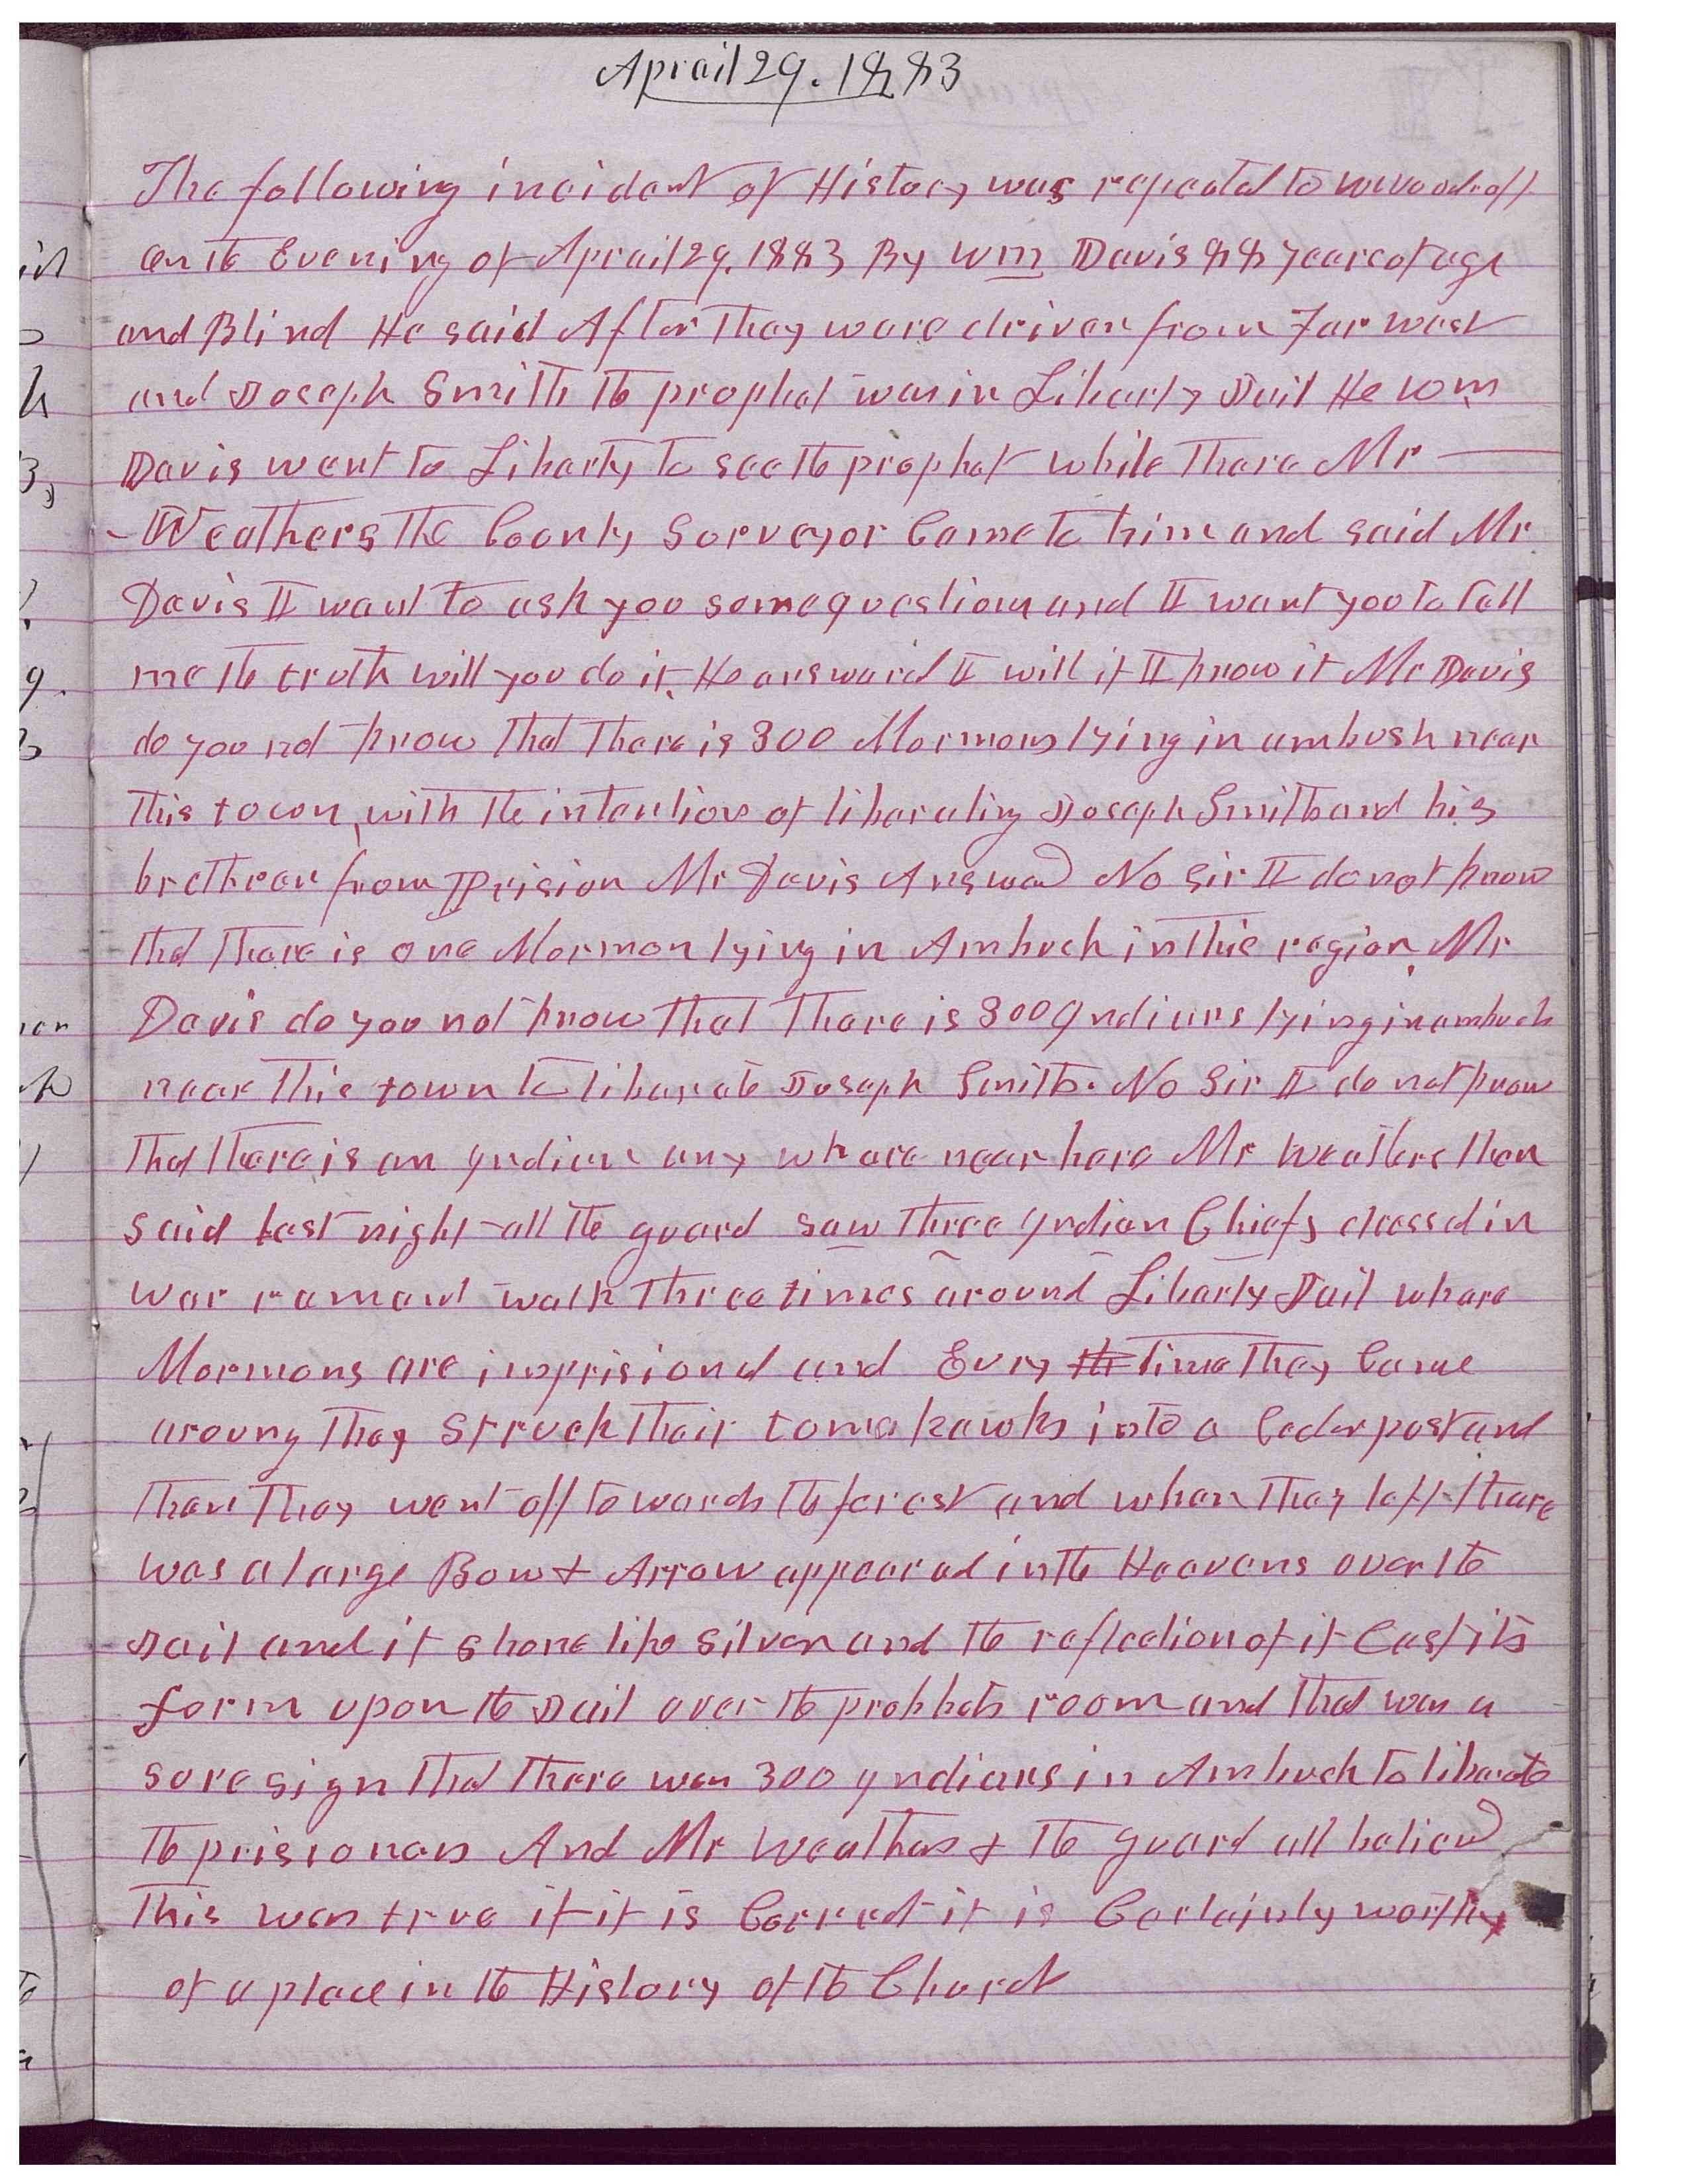 Aprail 29. 1883
The following incident of History was repeated to W Woodruff
on the Evening of Aprail 29. 1883 By Wm Davis 88 years of age
and Blind He said After they ware driven from Far West
and Joseph Smith the prophet was in Liberty Jail He Wm
Davis went to Liberty to see the prophet while there Mr ——
Weathers the County Surveyor Came to him and said Mr
Davis I want to ask you some questions and I want you to tell
me the truth will you do it, He answard I will if I know it Mr Davis
do you not know that there is 300 Mormons lying in ambush near
this town, with the intention of liberating Joseph Smith and his
brethren from Prision Mr Davis Answered No Sir I do not know
that there is one Mormon lying in Ambush in this region, Mr
Davis do you not know that there is 300 Indians lying in ambush
near this town to liberate Joseph Smith. No Sir I do not know
that there is an Indian any whare near here Mr Weathers then
said last night all the guard saw three Indian Chiefs dressed in
war rament walk three times around Liberty Jail whare
Mormons are inprisiond and Evry the time they Came
aroung they struck their tomahawks into a Cedar post and
then they went off towards the forest and when they left there
was a large Bow & Arrow appeared in the Heavens over the
Jail and it shone like silver and the reflection of it Cast its
form upon the Jail over the prophets room and that was a
sure sign that there was 300 Indians in Ambush to liberate
the prisioners And Mr Weathers & the guard all believed
this was true if it is Correct it is Certainly worthy
of a place in the History of the Church